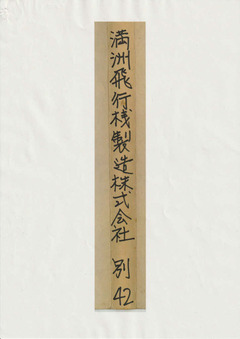 満洲飛行机製造株式会社 別42